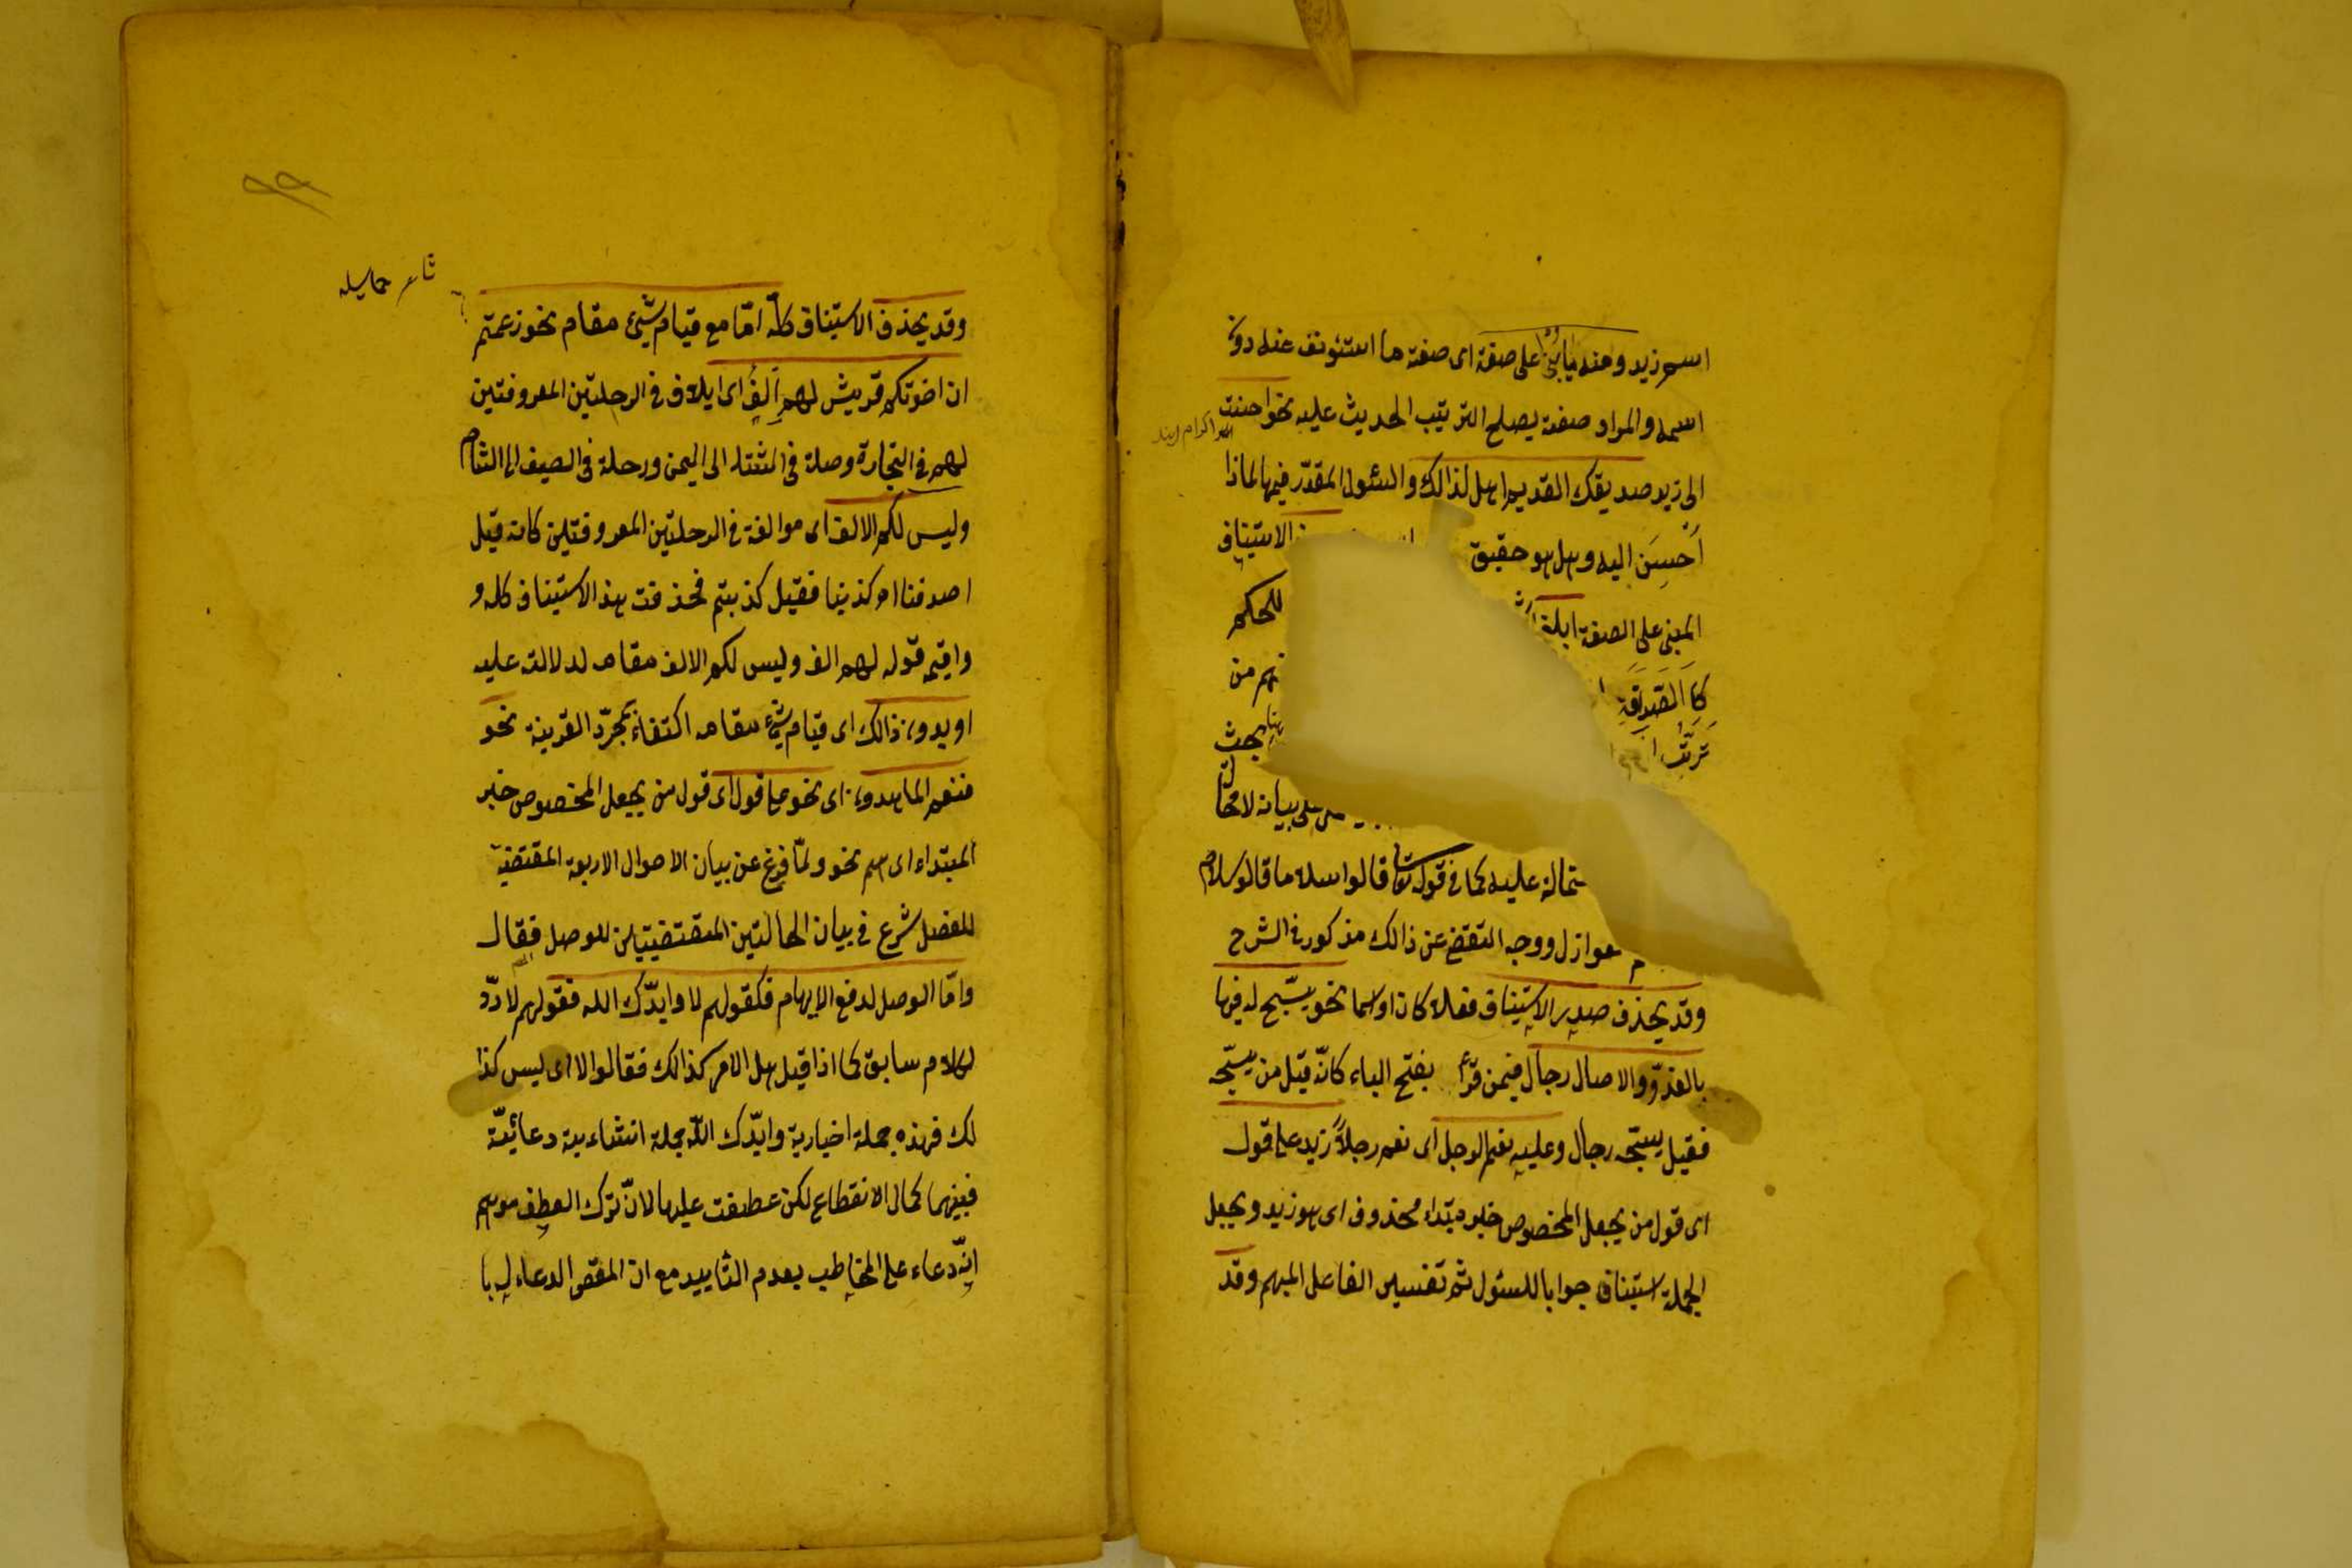 اسم زيد ومنه ما يأتي على صفة اى صفة ما استئونف عنه دون
اسمه والمراد صفة يصلح الترتيب الحديث عليه نحو احسنت
الى زيد صديقك القديم اهل لذالك والسئول المقدّر فيها لماذا
أحسِنَ اليه وهل هو حقيق الاستيناف
المبنى على الصفة ابلغ للحكم
كا الصَدِاقَةِ من
تَرَتُّب بحث
على بيانه لا محالة
عليه كما في قوله تعا قالوا سلاما قال سلام
العوازل ووجه التقضى عن ذالك مذكور في الشرح
وقد يحذف صدر الاستيناف فعلا كان او اسما نحو يسبّح له فيها
بالغدوّ والاصال رجال فيمن قرأ بفتح الباء كانّه قيل من يسبّحه
فقيل يسبّحه رجال وعليه نعم الرجل اى نعم رجلاً زيد على قول
اى قول من يجعل المخصوص خبر مبتداء محذوف اى هو زيد ويجعل
الجملة استيناف جوابا للسئول ثم تفسير الفاعل المبهم وقد
٩٩
وقد يحذف الاستيناف كلّه امّا مع قيام شيئ مقام نحو زعمتم
ان اخوتكم قريش لهم اَلِفٌ اى ايلاف في الرحلتين المعروفتين
لهم في التجارة وصلة في المشتاء الى اليمن ورحلة في الصيف الى الشام
وليس لكم الالف اى موالفة في الرحلتين المعروفتين كانه قيل
اصدقنا ام كذبنا فقيل كذبتم فحذفت هذا الاستيناف كله و
واقيم قوله لهم الف وليس لكم الالف مقامه لدلالته عليه
او بدون ذالك اى قيام شيئ مقامه اكتفاء بمجرّد القرينة نحو
فنعم الماهدون اى نحو على قول اى قول من يجعل المخصوص خبر
المبتداء اى هم نحو ولمّا فرغ عن بيان الاحوال الاربعة المقتضية
للفصل شرع في بيان الحالتين المقتضيتين للوصل فقال
وامّا الوصل لدفع الايهام فكقولهم لا وايدّك الله فقولهم لا ردّ
لكلام سابق كما اذا قيل هل الامر كذالك فقالوا لا اى ليس كذا
لك فهذه جملة اخبارية وايدّك اللّه جملة انشاءية دعائيّة
فبينهما كمال الانقطاع لكن عطفت عليها لانّ ترك العطف موهم
انّه دعاء على المخاطب بعدم التاييد مع ان المقص الدعاء له با